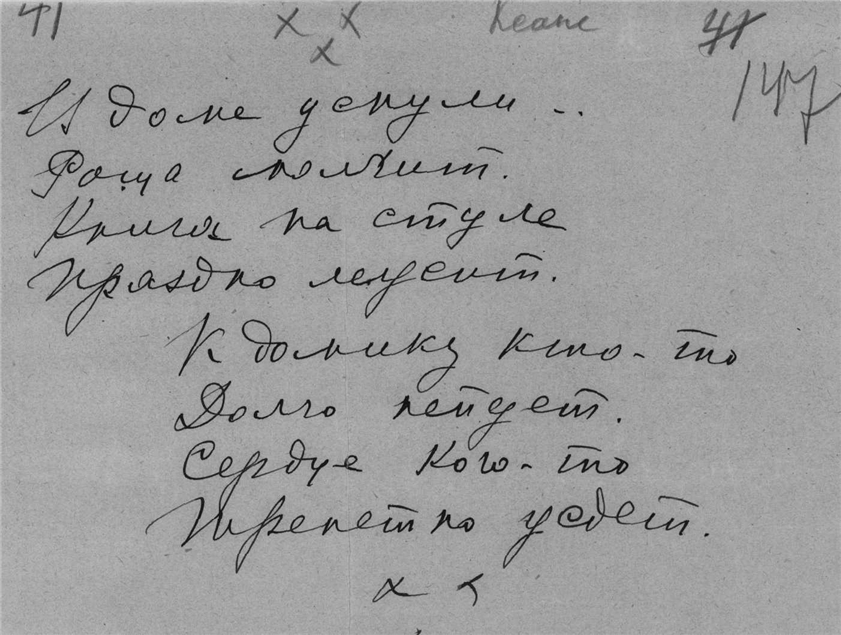 41 х х 41
х 147
В доме уснули ..
Роща молчит.
Книга на стуле
Праздно лежит.
К домику кто-то
Долго нейдет.
Сердце кого-то
Трепетно ждет.
х х